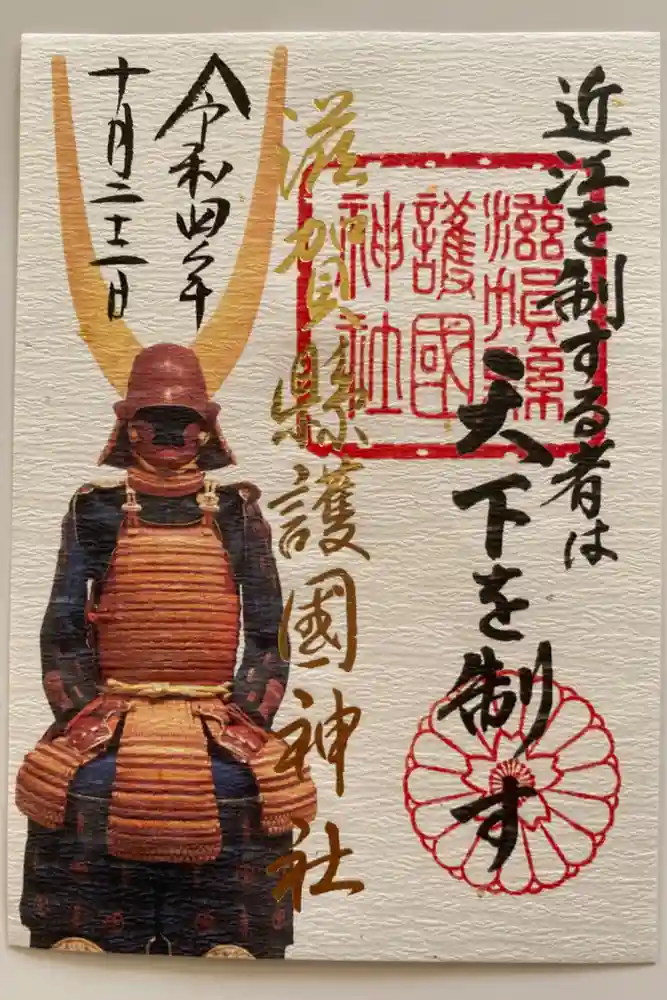 近江を制する者は
天下を制す
滋賀縣
護國
神社
滋賀縣護國神社
令和四年
十月二十一日